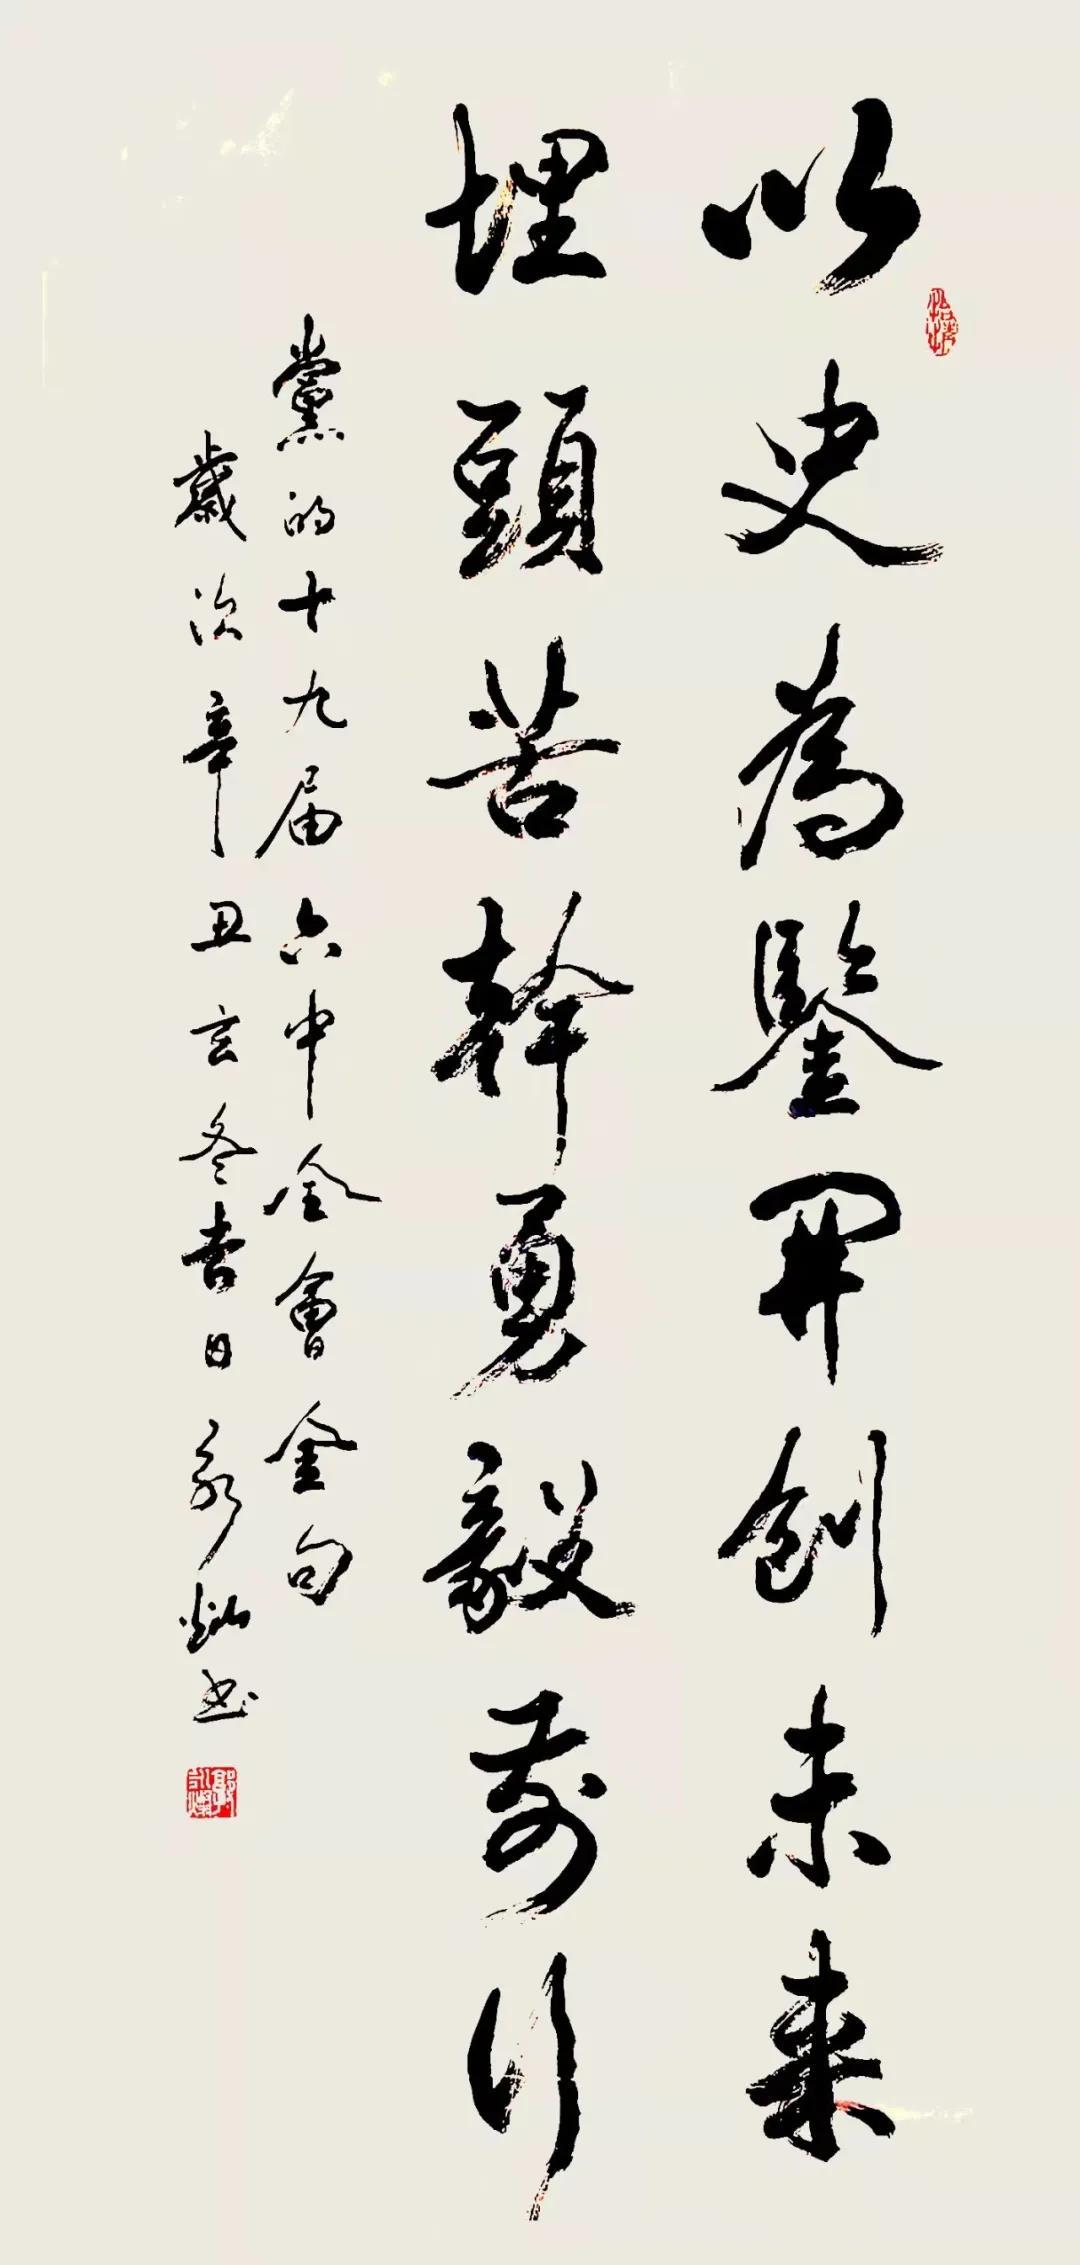 以史為鑒開創未來
埋頭苦幹勇毅前行
黨的十九届六中全會金句
歲次辛丑玄冬吉日永灿书
郭永燦